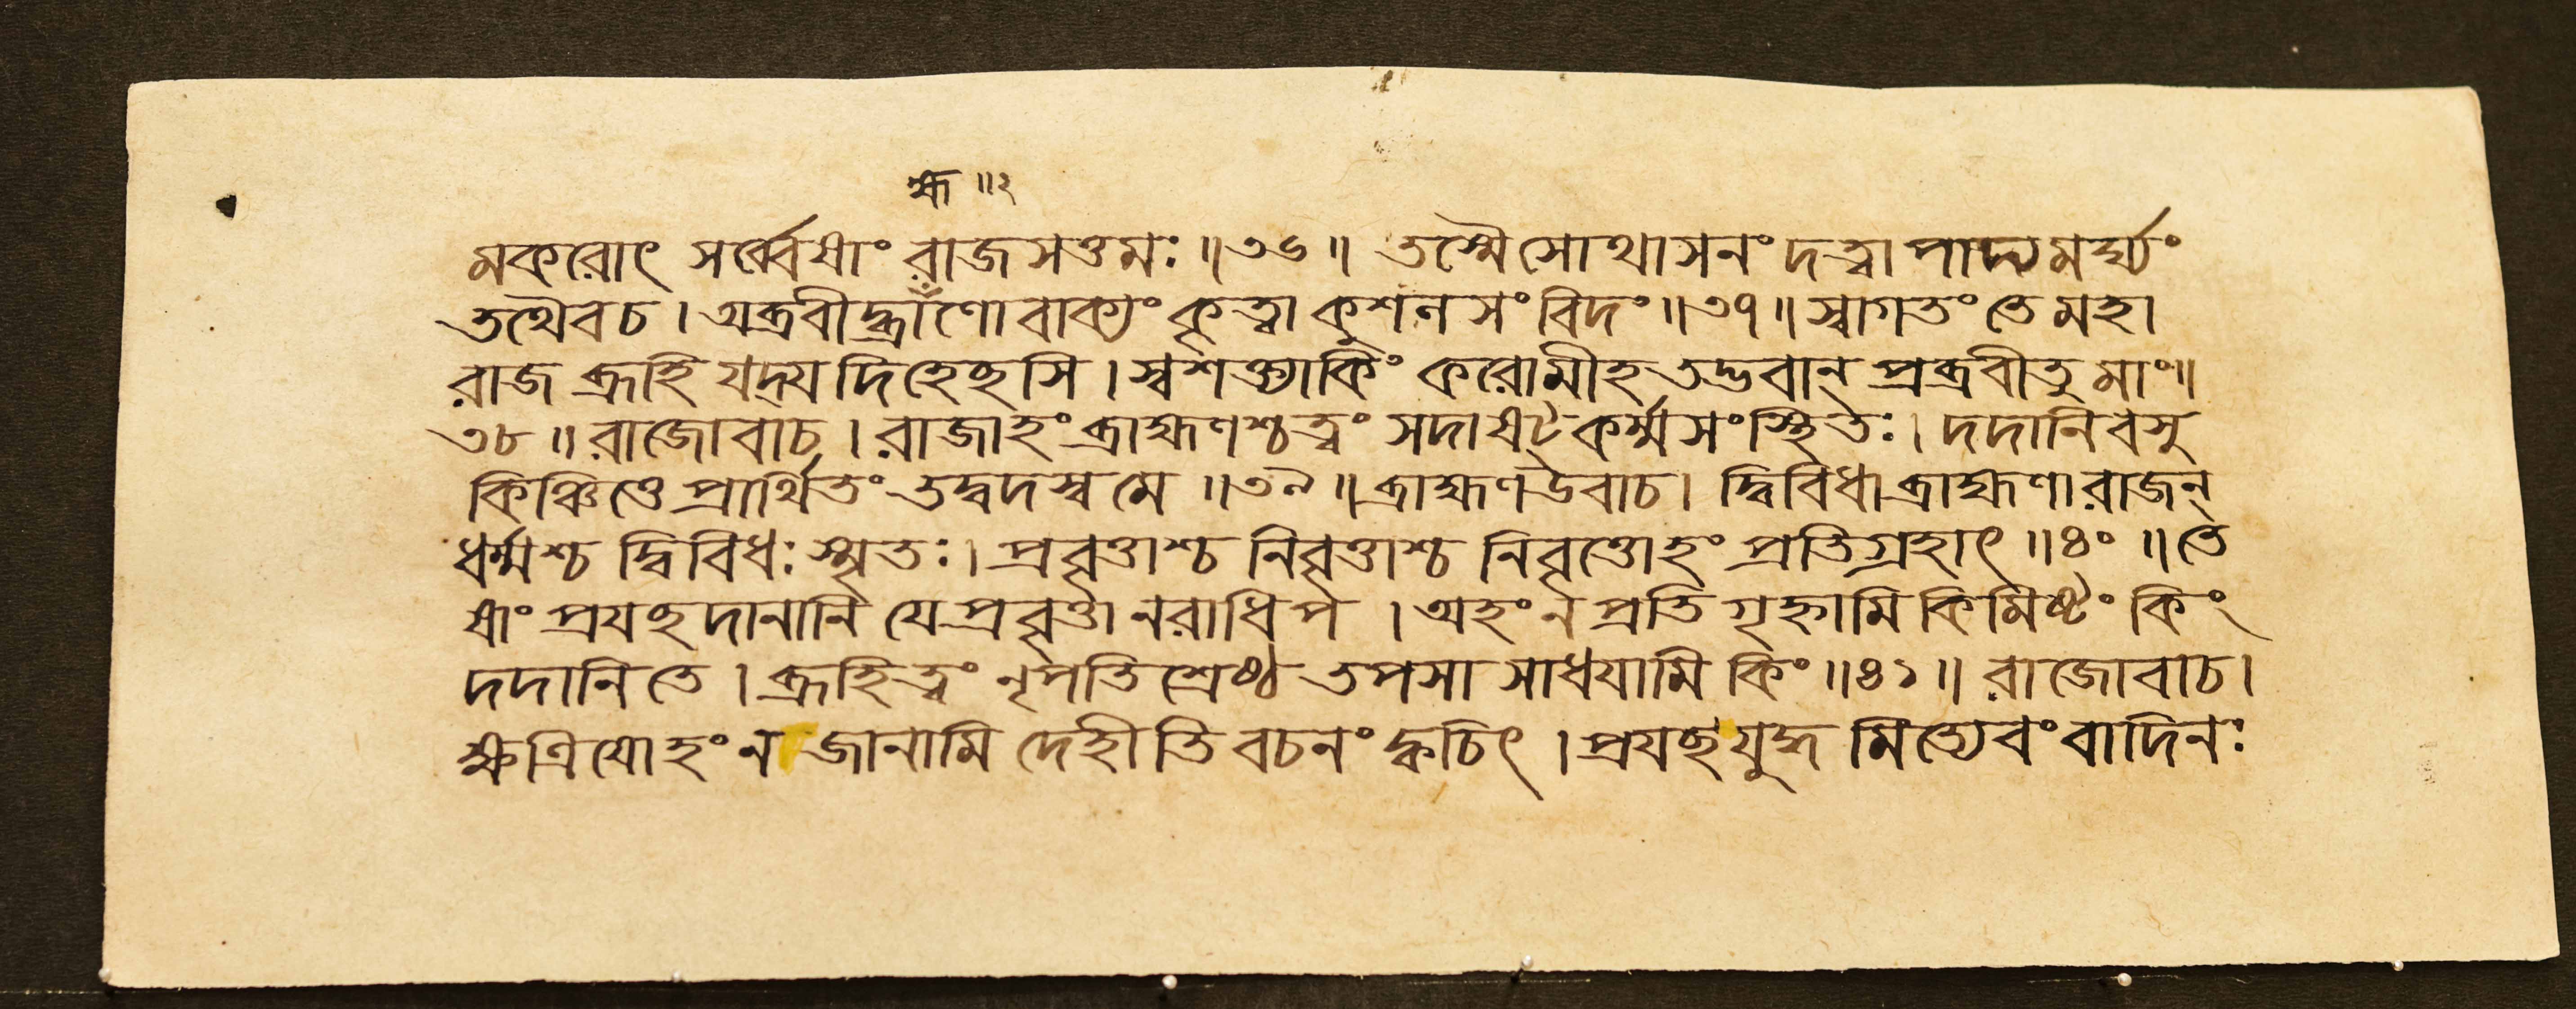 হ্ম ॥২
মকরোৎ সর্ব্বেষাং রাজসত্তমঃ ॥৩৬॥ তস্মৈসোথাসনং দত্ত্বা পাদ্যমর্ঘ্যং
তথৈবচ । অব্রবীদ্ব্রাঁণো বাক্যং কৃত্বা কুশলসংবিদং ॥৩৭॥ স্বাগতং তে মহা
রাজ ব্রূহি যদ্যদিহেচ্ছসি । স্বশক্ত্যাকিং করোমীহ তদ্ভবান্ প্রব্রবীতু মাং॥
৩৮ ॥ রাজোবাচ । রাজাহং ব্রাহ্মণশ্চত্বং সদাষট্কর্ম্মসংস্থিতঃ । দদানিবসু
কিঞ্চিত্তে প্রার্থিতং তদ্বদস্ব মে ॥৩৯ ॥ ব্রাহ্মণউবাচ । দ্বিবিধা ব্রাহ্মণা রাজন্
ধর্ম্মশ্চ দ্বিবিধঃ স্মৃতঃ । প্রবৃত্তাশ্চ নিবৃত্তাশ্চ নিবৃত্তোহং প্রতিগ্রহাৎ ॥৪০ ॥ তে
ষাং প্রযচ্ছ দানানি যে প্রবৃত্তা নরাধিপ । অহং ন প্রতি গৃহ্ণামি কিমিষ্টং কিং
দদানি তে । ব্রূহি ত্বং নৃপতি শ্রেষ্ঠ তপসা সাধযামি কিং ॥৪১॥ রাজোবাচ ।
ক্ষত্রিযোহং ন জানামি দেহীতি বচনং ক্বচিৎ । প্রযচ্ছযুদ্ধ মিত্যেবং বাদিনঃ